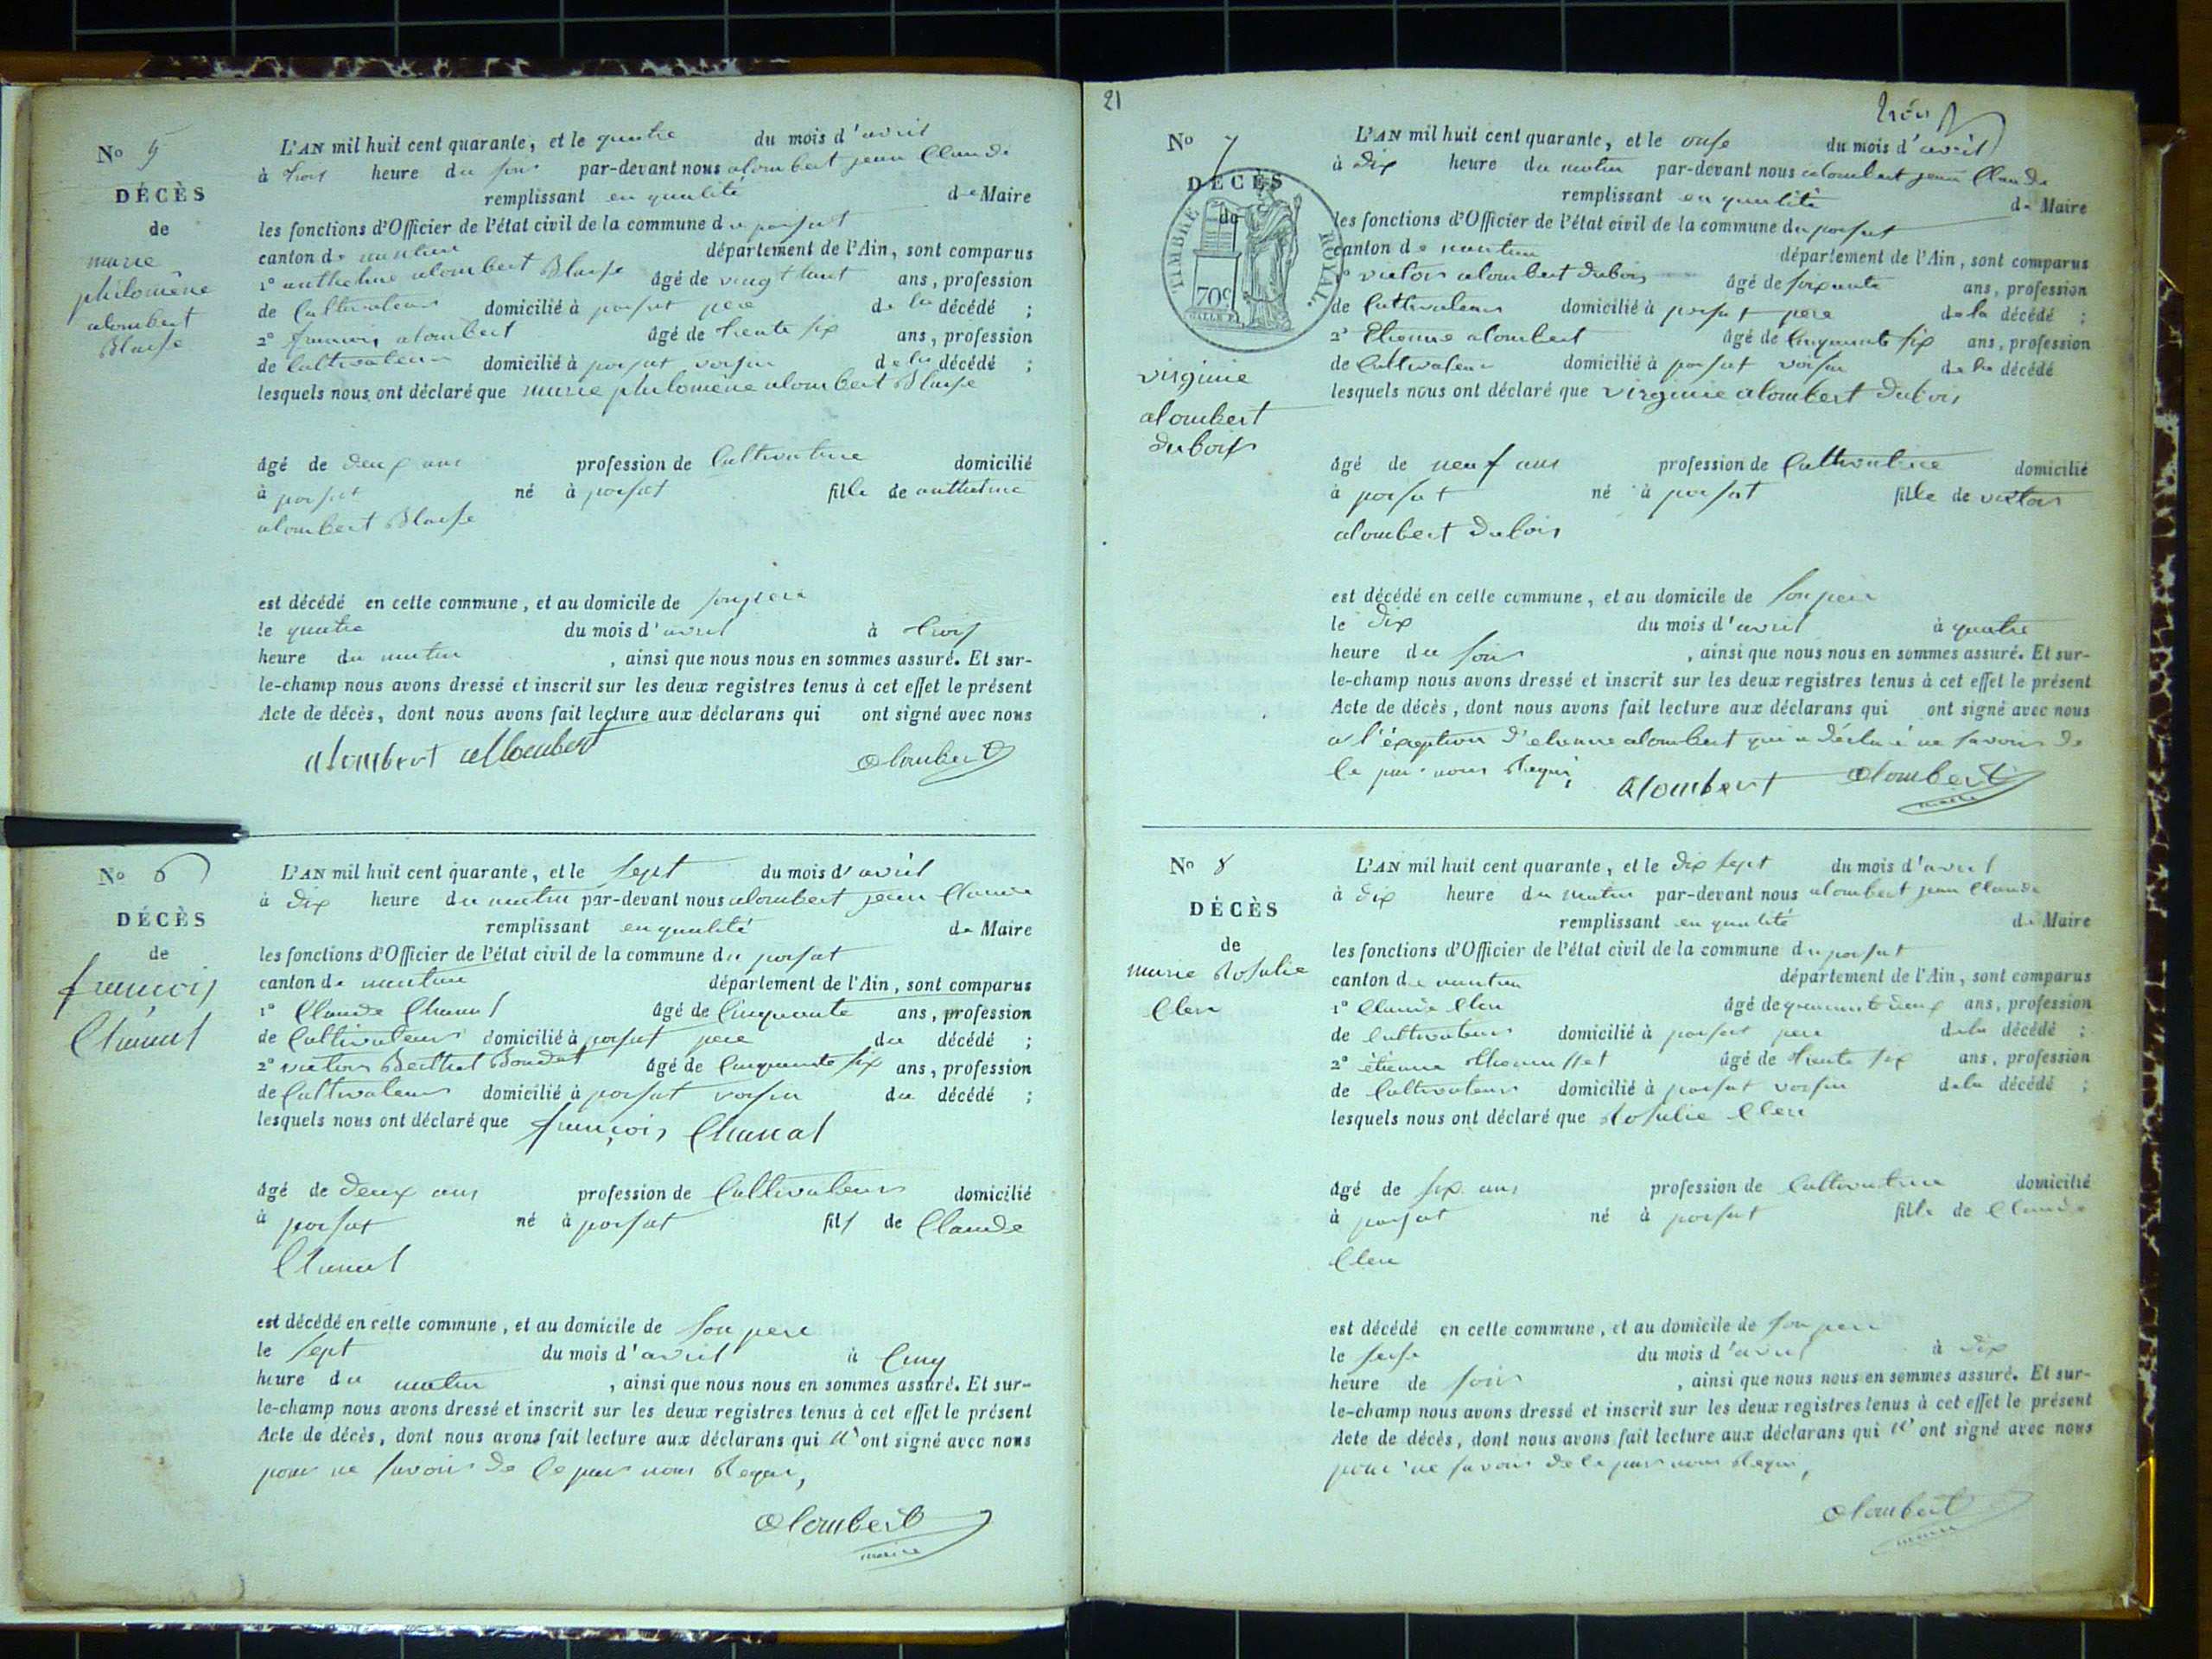 N° 5
DÉCÈS
de
marie
philomène
alombert
Blaise
L'AN mil huit cent quarante, et le quatre du mois d'avril
à trois heure du soir par-devant nous alombert jean Claude
remplissant en qualité de Maire
les fonctions d'Officier de l'état civil de la commune du porsat
canton de nantua département de l'Ain, sont comparus
1° anthelme alombert Blaise âgé de vingt huit ans, profession
de Cultivateur domicilié à porsat père de la décédé ;
2° francois alombert âgé de trente six ans, profession
de Cultivateur domicilié à porsat voisin de la décédé ;
lesquels nous ont déclaré que marie philomène alombert Blaise
âgé de deux ans profession de Cultivatrice domicilié
à porsat né à porsat fille de anthelme
alombert Blaise
est décédé en cette commune, et au domicile de son pere
le quatre du mois d'avril à trois
heure du matin , ainsi que nous nous en sommes assuré. Et sur-
le-champ nous avons dressé et inscrit sur les deux registres tenus à cet effet le présent
Acte de décès, dont nous avons fait lecture aux déclarans qui ont signé avec nous
alombert alombert alombert
N° 6
DÉCÈS
de
francois
Chanal
L'AN mil huit cent quarante, et le sept du mois d'avril
à dix heure du matin par-devant nous alombert jean Claude
remplissant en qualité de Maire
les fonctions d'Officier de l'état civil de la commune du porsat
canton de nantua département de l'Ain, sont comparus
1° Claude Chanal âgé de Cinquante ans, profession
de Cultivateur domicilié à porsat pere du décédé ;
2° victor Berthet Bondet âgé de Cinquante six ans, profession
de Cultivateur domicilié à porsat voisin du décédé ;
lesquels nous ont déclaré que françois Chanal
âgé de deux ans profession de Cultivateur domicilié
à porsat né à porsat fils de Claude
Chanal
est décédé en cette commune, et au domicile de Son pere
le sept du mois d'avril à Cinq
heure du matin , ainsi que nous nous en sommes assuré. Et sur-
le-champ nous avons dressé et inscrit sur les deux registres tenus à cet effet le présent
Acte de décès, dont nous avons fait lecture aux déclarans qui n'ont signé avec nous
pour ne savoir de ce par nous Requi,
alombert
maire
21
N° 7
DÉCÈS
de
TIMBRE ROYAL.
70c
virginie
alombert
dubois
L'AN mil huit cent quarante, et le onse du mois d'avril
à dix heure du matin par-devant nous alombert jean Claude
remplissant en qualité de Maire
les fonctions d'Officier de l'état civil de la commune du porsat
canton de nantua département de l'Ain, sont comparus
1° victor alombert dubois âgé de soixante ans, profession
de Cultivateur domicilié à porsat pere de la décédé ;
2° Etienne alombert âgé de Cinquante six ans, profession
de Cultivateur domicilié à porsat voisin de la décédé
lesquels nous ont déclaré que virginie alombert dubois
âgé de neuf ans profession de Cultivatrice domicilié
à porsat né à porsat fille de victor
alombert dubois
est décédé en cette commune, et au domicile de Son pere
le dix du mois d'avril à quatre
heure du soir , ainsi que nous nous en sommes assuré. Et sur-
le-champ nous avons dressé et inscrit sur les deux registres tenus à cet effet le présent
Acte de décès, dont nous avons fait lecture aux déclarans qui ont signé avec nous
a l'éxeption d'etienne alombert qui a déclaré ne savoir de
Ce par nous Requi, Alombert alombert
maire
N° 8
DÉCÈS
de
marie Rosalie
Clerc
L'AN mil huit cent quarante, et le dix sept du mois d'avril
à dix heure du matin par-devant nous alombert jean Claude
remplissant en qualité de Maire
les fonctions d'Officier de l'état civil de la commune du porsat
canton de nantua département de l'Ain, sont comparus
1° Claude Clerc âgé de quarante deux ans, profession
de Cultivateur domicilié à porsat pere de la décédé ;
2° étienne Thomasset âgé de trente six ans, profession
de Cultivateur domicilié à porsat voisin de la décédé ;
lesquels nous ont déclaré que Rosalie Clerc
âgé de six ans profession de Cultivatrice domicilié
à porsat né à porsat fille de Claude
Clerc
est décédé en cette commune, et au domicile de son pere
le seise du mois d'avril à dix
heure de soir , ainsi que nous nous en sommes assuré. Et sur-
le-champ nous avons dressé et inscrit sur les deux registres tenus à cet effet le présent
Acte de décès, dont nous avons fait lecture aux déclarans qui n'ont signé avec nous
pour ne savoir de ce par nous Requi,
alombert
maire